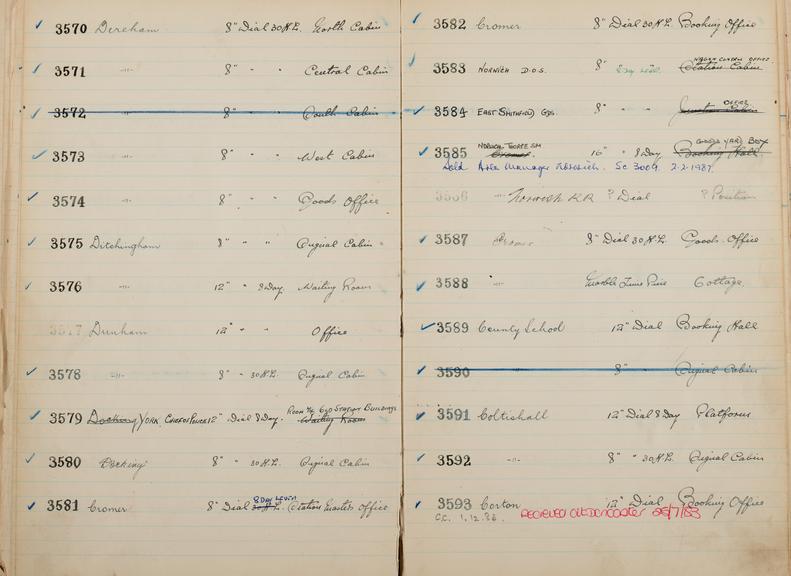 3570 Dereham 8" Dial 30 H.L. North Cabin
3571 -"- 8" " " Central Cabin
3572 8" " " South Cabin
3573 -"- 8" " " West Cabin
3574 -"- 8" " " Goods Office
3575 Ditchingham 8" " " Signal Cabin
3576 -"- 12" " 8 Day. Waiting Room
3577 Dunham 12" " " Office
3578 -"- 8" " 30 H.L. Signal Cabin
ROOM 76 G50 STATION BUILDINGS
3579 Docking YORK, CHIEF OF POLICE 12" Dial 8 Day. Waiting Room
3580 Docking 8" " 30 H.L. Signal Cabin
8 DAY LEWIS
3581 Cromer 8" Dial 30 H.L. Station Masters Office
3582 Cromer 8" Dial 30 H.L. Booking Office
OFFICE
3583 NORWICH D.O.S. 8" 8 Day Station Cabin
OFFICE
3584 EAST SMITHFIELD GDS. 8" " " Junction Cabin
NORWICH THORPE SM GOODS YARD BOX
3585 Cromer. 16" " 8 Day Booking Hall
Sold Area Manager Norwich. Sc 3009. 2-2-1987.
3586 -"- Norwich RR ? Dial ? Position
3587 Cromer 8" Dial 30 H.L. Goods Office
3588 -"- Marble Time Piece Cottage.
3589 County School 12" Dial Booking Hall
3590 8" " Signal Cabin
3591 Coltishall 12" Dial 8 Day Platform
3592 -"- 8" " 30 H.L. Signal Cabin
3593 Corton 12" Dial Booking Office
C.C. 1.12.86. RECIEVED AT DONCASTER 25/7/83